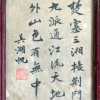 楚塞三湘接荊門
九派通江流天地
外山色有無中
吳湖帆